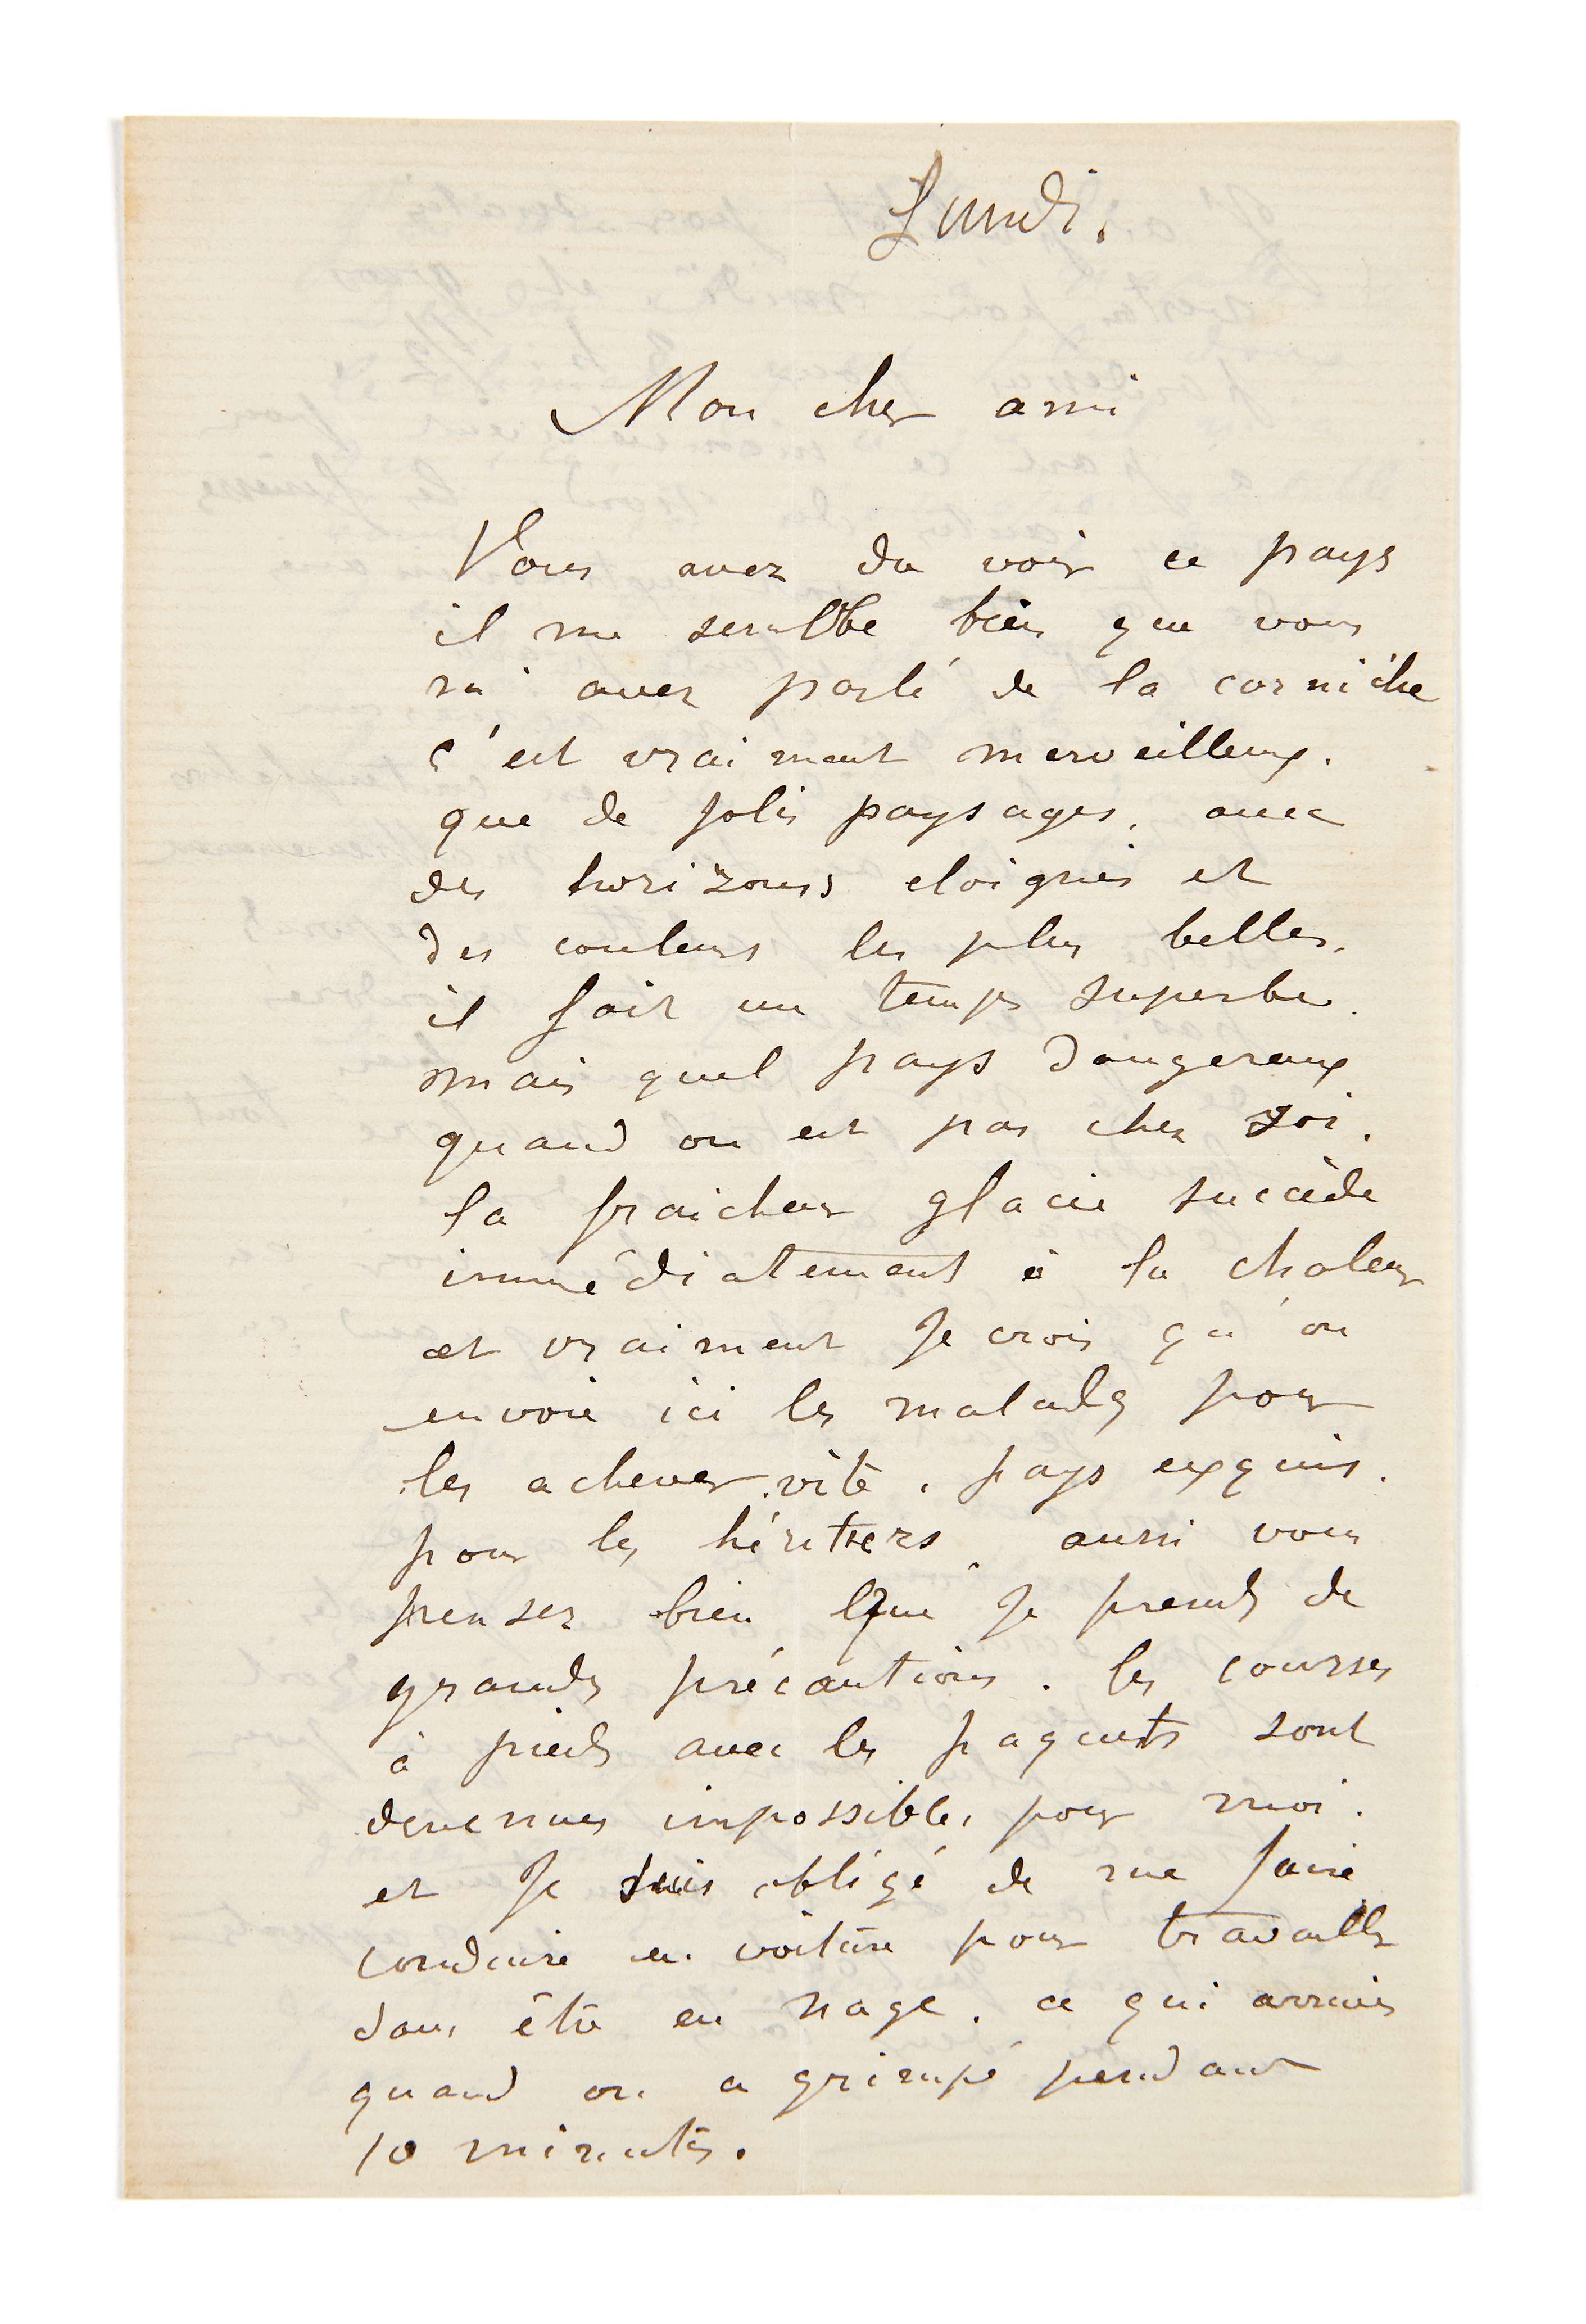 Lundi.
Mon cher ami
Vous avez du voir ce pays
il me semble bien que vous
m'avez parlé de la corniche
c'est vraiment merveilleux.
que de jolis paysages. avec
des horizons eloignés et
des couleurs les plus belles.
il fait un temps superbe.
mais quel pays dangereux
quand on est pas chez soi.
la fraicheur glacée succède
immédiatement à la chaleur
et vraiment je crois qu'on
envoie ici les malades pour
les achever vite. pays exquis.
pour les héritiers. aussi vous
pensez bien que je prends de
grandes précautions. les courses
à pieds avec les paquets sont
devenues impossibles pour moi.
et je suis obligé de me faire
conduire en voiture pour travailler
sans être en nage. ce qui arrive
quand on a grimpé pendant
10 minutes.